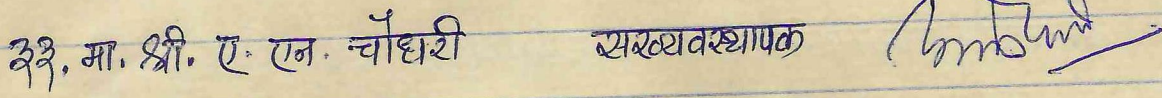 ३३. मा. श्री. ए. एन. चौधरी सरव्यवस्थापक